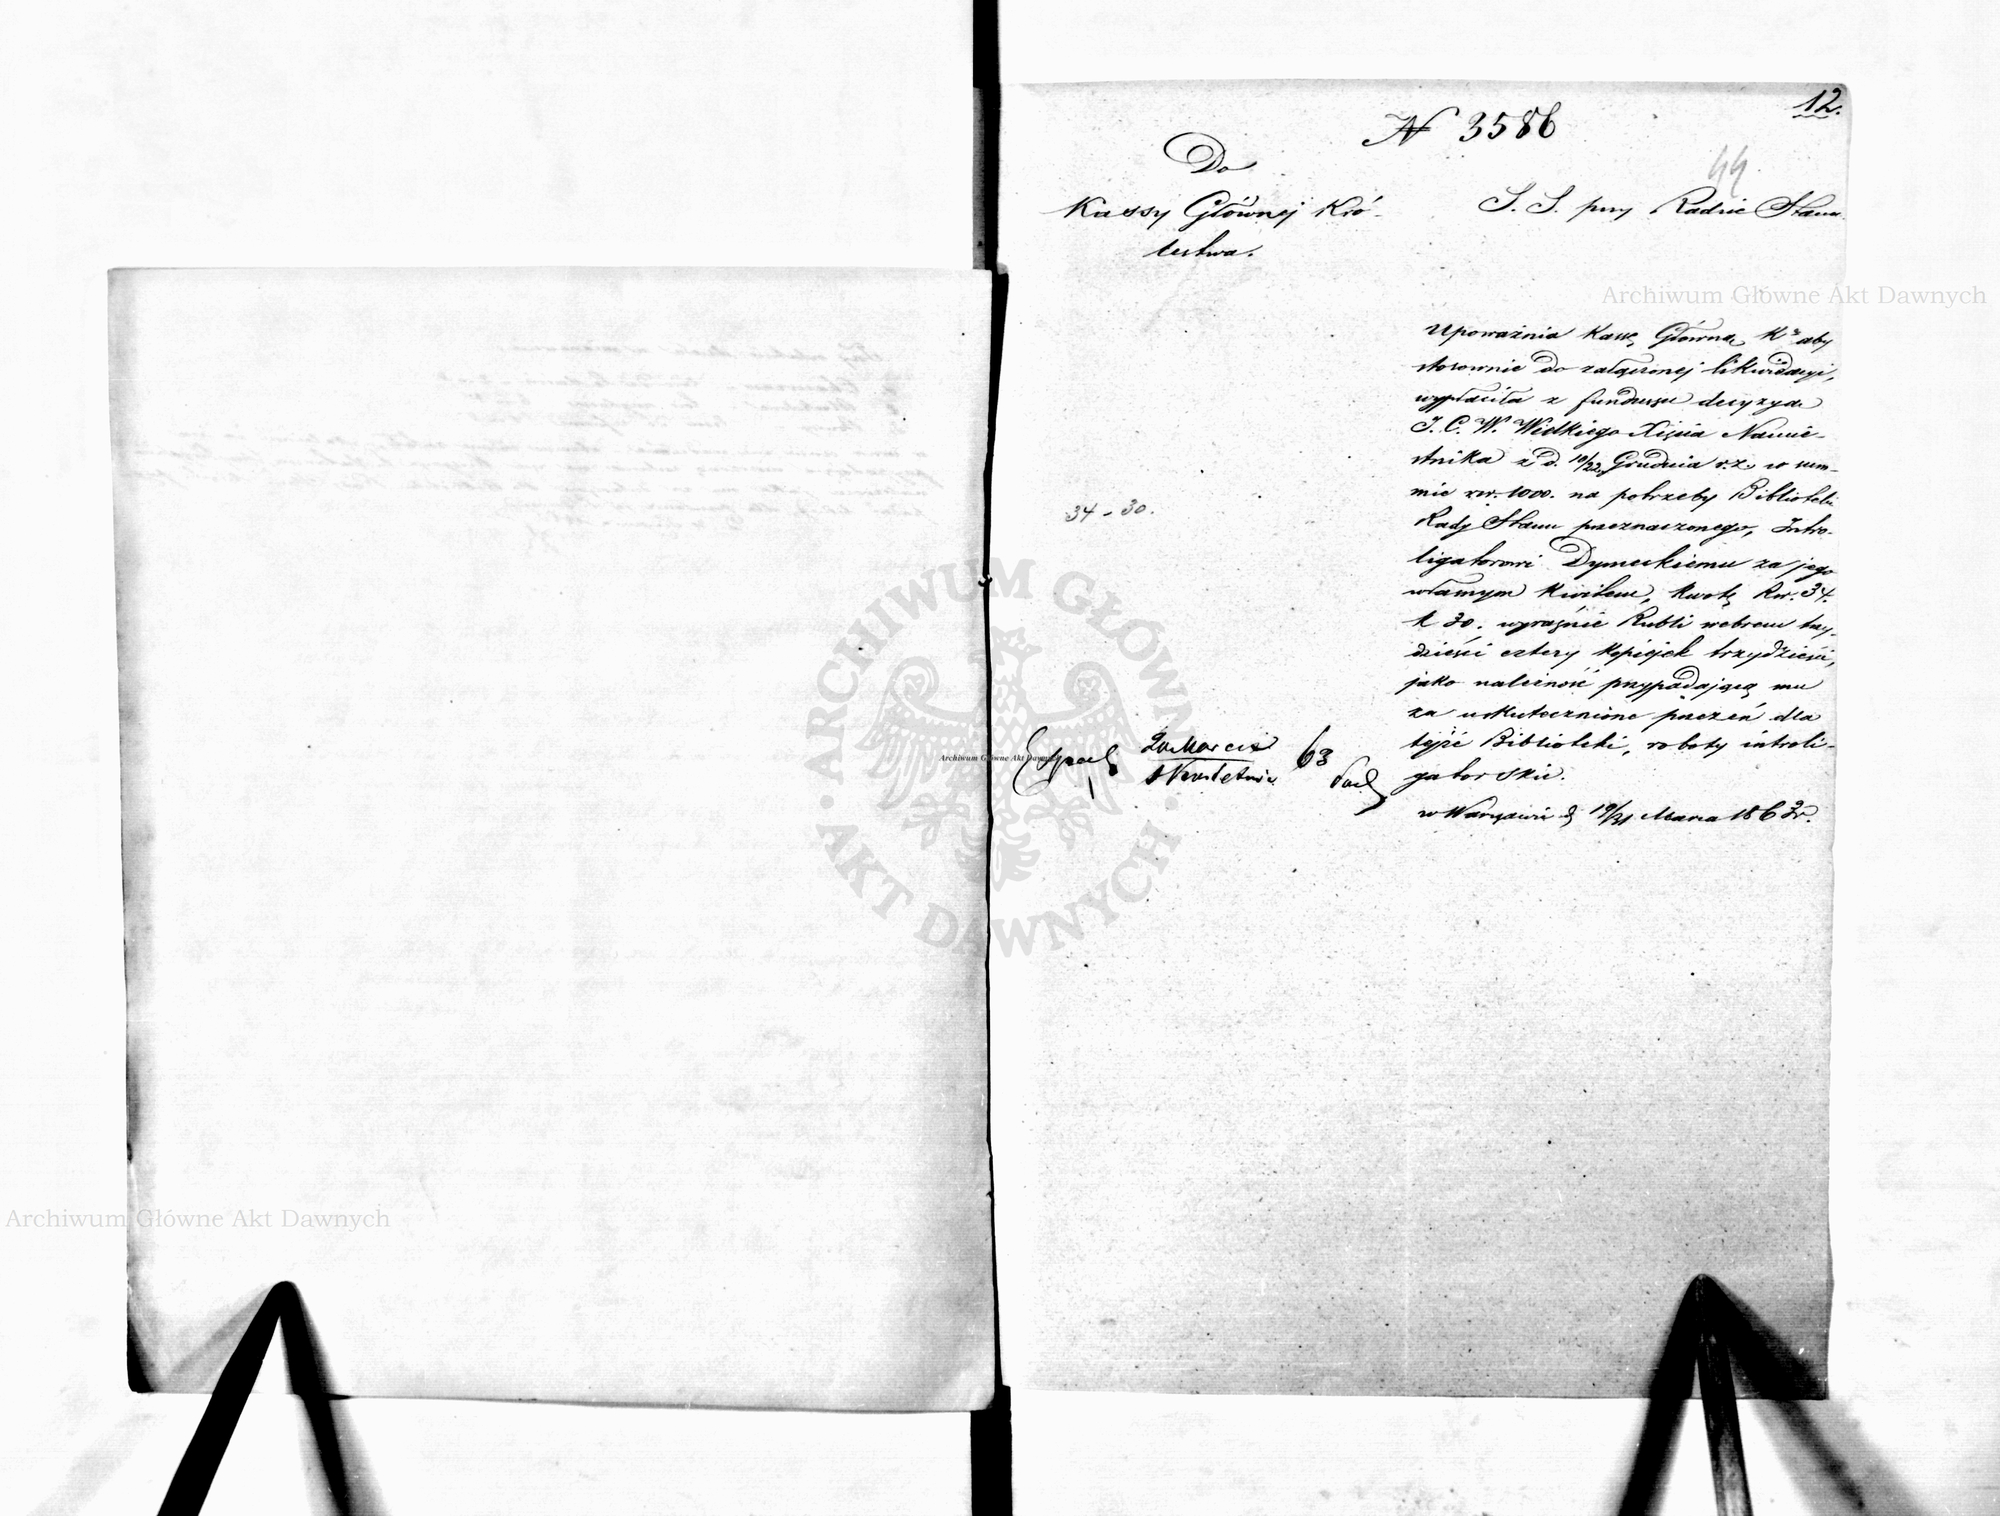 12.
N 3586
44
Do
Kassy Głównej Kró-
lestwa.
S. S. przy Radzie Stanu
Upoważnia Kassę Główną Kr. aby
stosownie do załączonej likwidacyi,
wypłaciła z funduszu decyzyą
J. C. W. Wielkiego Xięcia Namie-
stnika z d. 10/22 Grudnia r. z. w sum-
mie rsr. 1000. na potrzeby Biblioteki
Rady Stanu przeznaczonego, Intro-
ligatorowi Dymeckiemu za jego
własnym kwitem, kwotę Rsr. 34.
k 30. wyraźnie Rubli srebrem trzy-
dzieści cztery kopiejek trzydzieści,
jako należność przypadającą mu
za uskutecznione przezeń dla
tejże Biblioteki, roboty introli-
gatorskie.
w Warszawie d. 19/31 Marca 1863 r.
34 - 30.
20 Marca
1 Kwietnia
63
Archiwum Główne Akt Dawnych
Archiwum Główne Akt Dawnych
Archiwum Główne Akt Dawnych
ARCHIWUM GŁÓWNE
AKT DAWNYCH